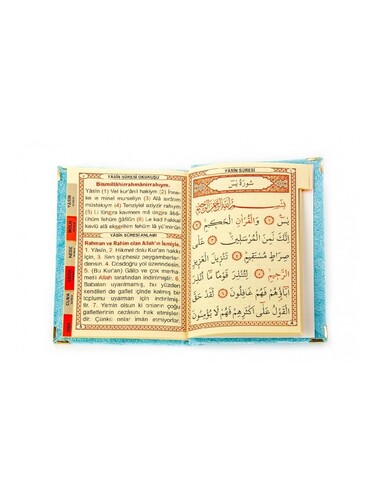 YÂSİN SÛRESİ OKUNUŞU
Bismillâhirrahmânirrahıym.
Yâsîn (1) Vel kur'ânil hakîym (2) İnne-
ke le minel murselîyn (3) Alâ sırâtım
müstekıym (4) Tenzîylel azîyzir rahıym
(5) Li tünzira kavmem mâ ünzira âbâ-
ühüm fehüm gâfilûn (6) Le kad hakkal
kavlü alâ ekserihim fehüm lâ yü'minûn
YÂSİN SÛRESİ ANLAMI
Rahman ve Rahim olan Allah'ın İsmiyle,
1. Yâsîn, 2. Hikmet dolu Kur'an hakkı
için, 3. Sen şüphesiz peygamberler-
densin. 4. Dosdoğru yol üzerindesin.
5. (Bu Kur'an) Gâlip ve çok merha-
metli Allah tarafından indirilmiştir. 6.
Babaları uyarılmamış, bu yüzden
kendileri de gaflet içinde kalmış bir
toplumu uyarman için indirilmiş-
tir. 7. Yemin olsun ki onların çoğu
gafletlerinin cezasını hak etmişler-
dir. Çünkü onlar iman etmiyorlar.
YÂSİN SÛRESİ
سُورَةُ يٰسٓ
بِسْمِ اللّٰهِ الرَّحْمٰنِ الرَّحِيمِ
يٰسٓ ﴿١﴾ وَالْقُرْاٰنِ الْحَكِيمِ ﴿٢﴾
اِنَّكَ لَمِنَ الْمُرْسَلِينَ ﴿٣﴾ عَلٰى
صِرَاطٍ مُسْتَقِيمٍ ﴿٤﴾ تَنْزِيلَ الْعَزِيزِ
الرَّحِيمِ ﴿٥﴾ لِتُنْذِرَ قَوْمًا مَٓا اُنْذِرَ
اٰبَٓاؤُهُمْ فَهُمْ غَافِلُونَ ﴿٦﴾ لَقَدْ حَقَّ
الْقَوْلُ عَلٰٓى اَكْثَرِهِمْ فَهُمْ لَا يُؤْمِنُونَ